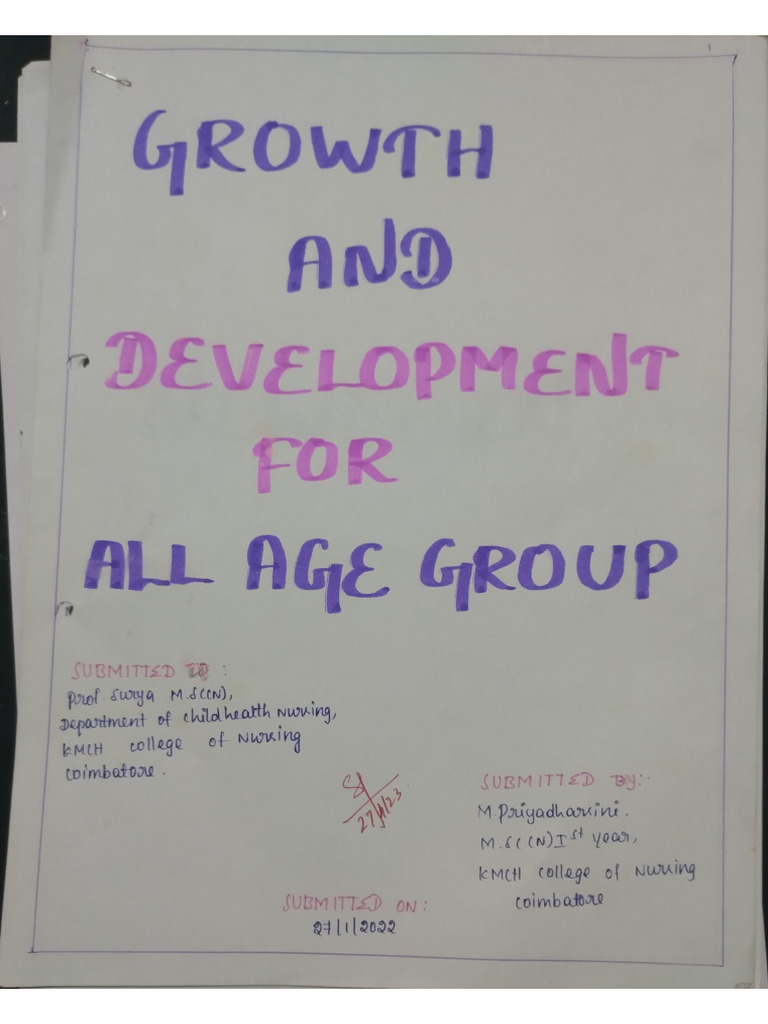 GROWTH
AND
DEVELOPMENT
FOR
ALL AGE GROUP
SUBMITTED TO :
Prof. Surya M.Sc(N),
Department of Child health Nursing,
KMCH college of Nursing
Coimbatore.
27/1/23
SUBMITTED BY:-
M. Priyadharsini.
M.Sc(N) Ist year,
KMCH college of Nursing
Coimbatore
SUBMITTED ON:
27/1/2022